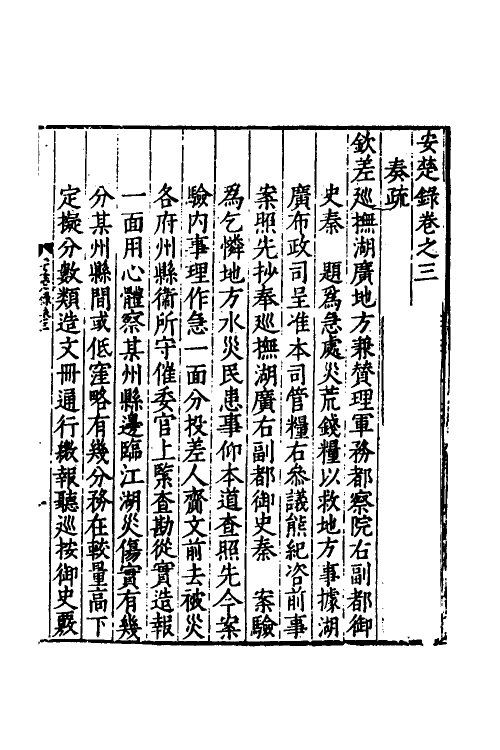 安楚録卷之三
奏疏
欽差巡撫湖廣地方兼贊理軍務都察院右副都御
史秦　題爲急處災荒錢糧以救地方事據湖
廣布政司呈准本司管糧右參議熊紀咨前事
案照先抄奉巡撫湖廣右副都御史秦　案驗
爲乞憐地方水災民患事仰本道查照先今案
驗内事理作急一面分投差人齎文前去被災
各府州縣衛所守催委官上緊查勘從實造報
一面用心體察某州縣邊臨江湖災傷實有幾
分某州縣間或低窪略有幾分務在較量高下
定擬分數類造文冊通行繳報聽巡按御史覈